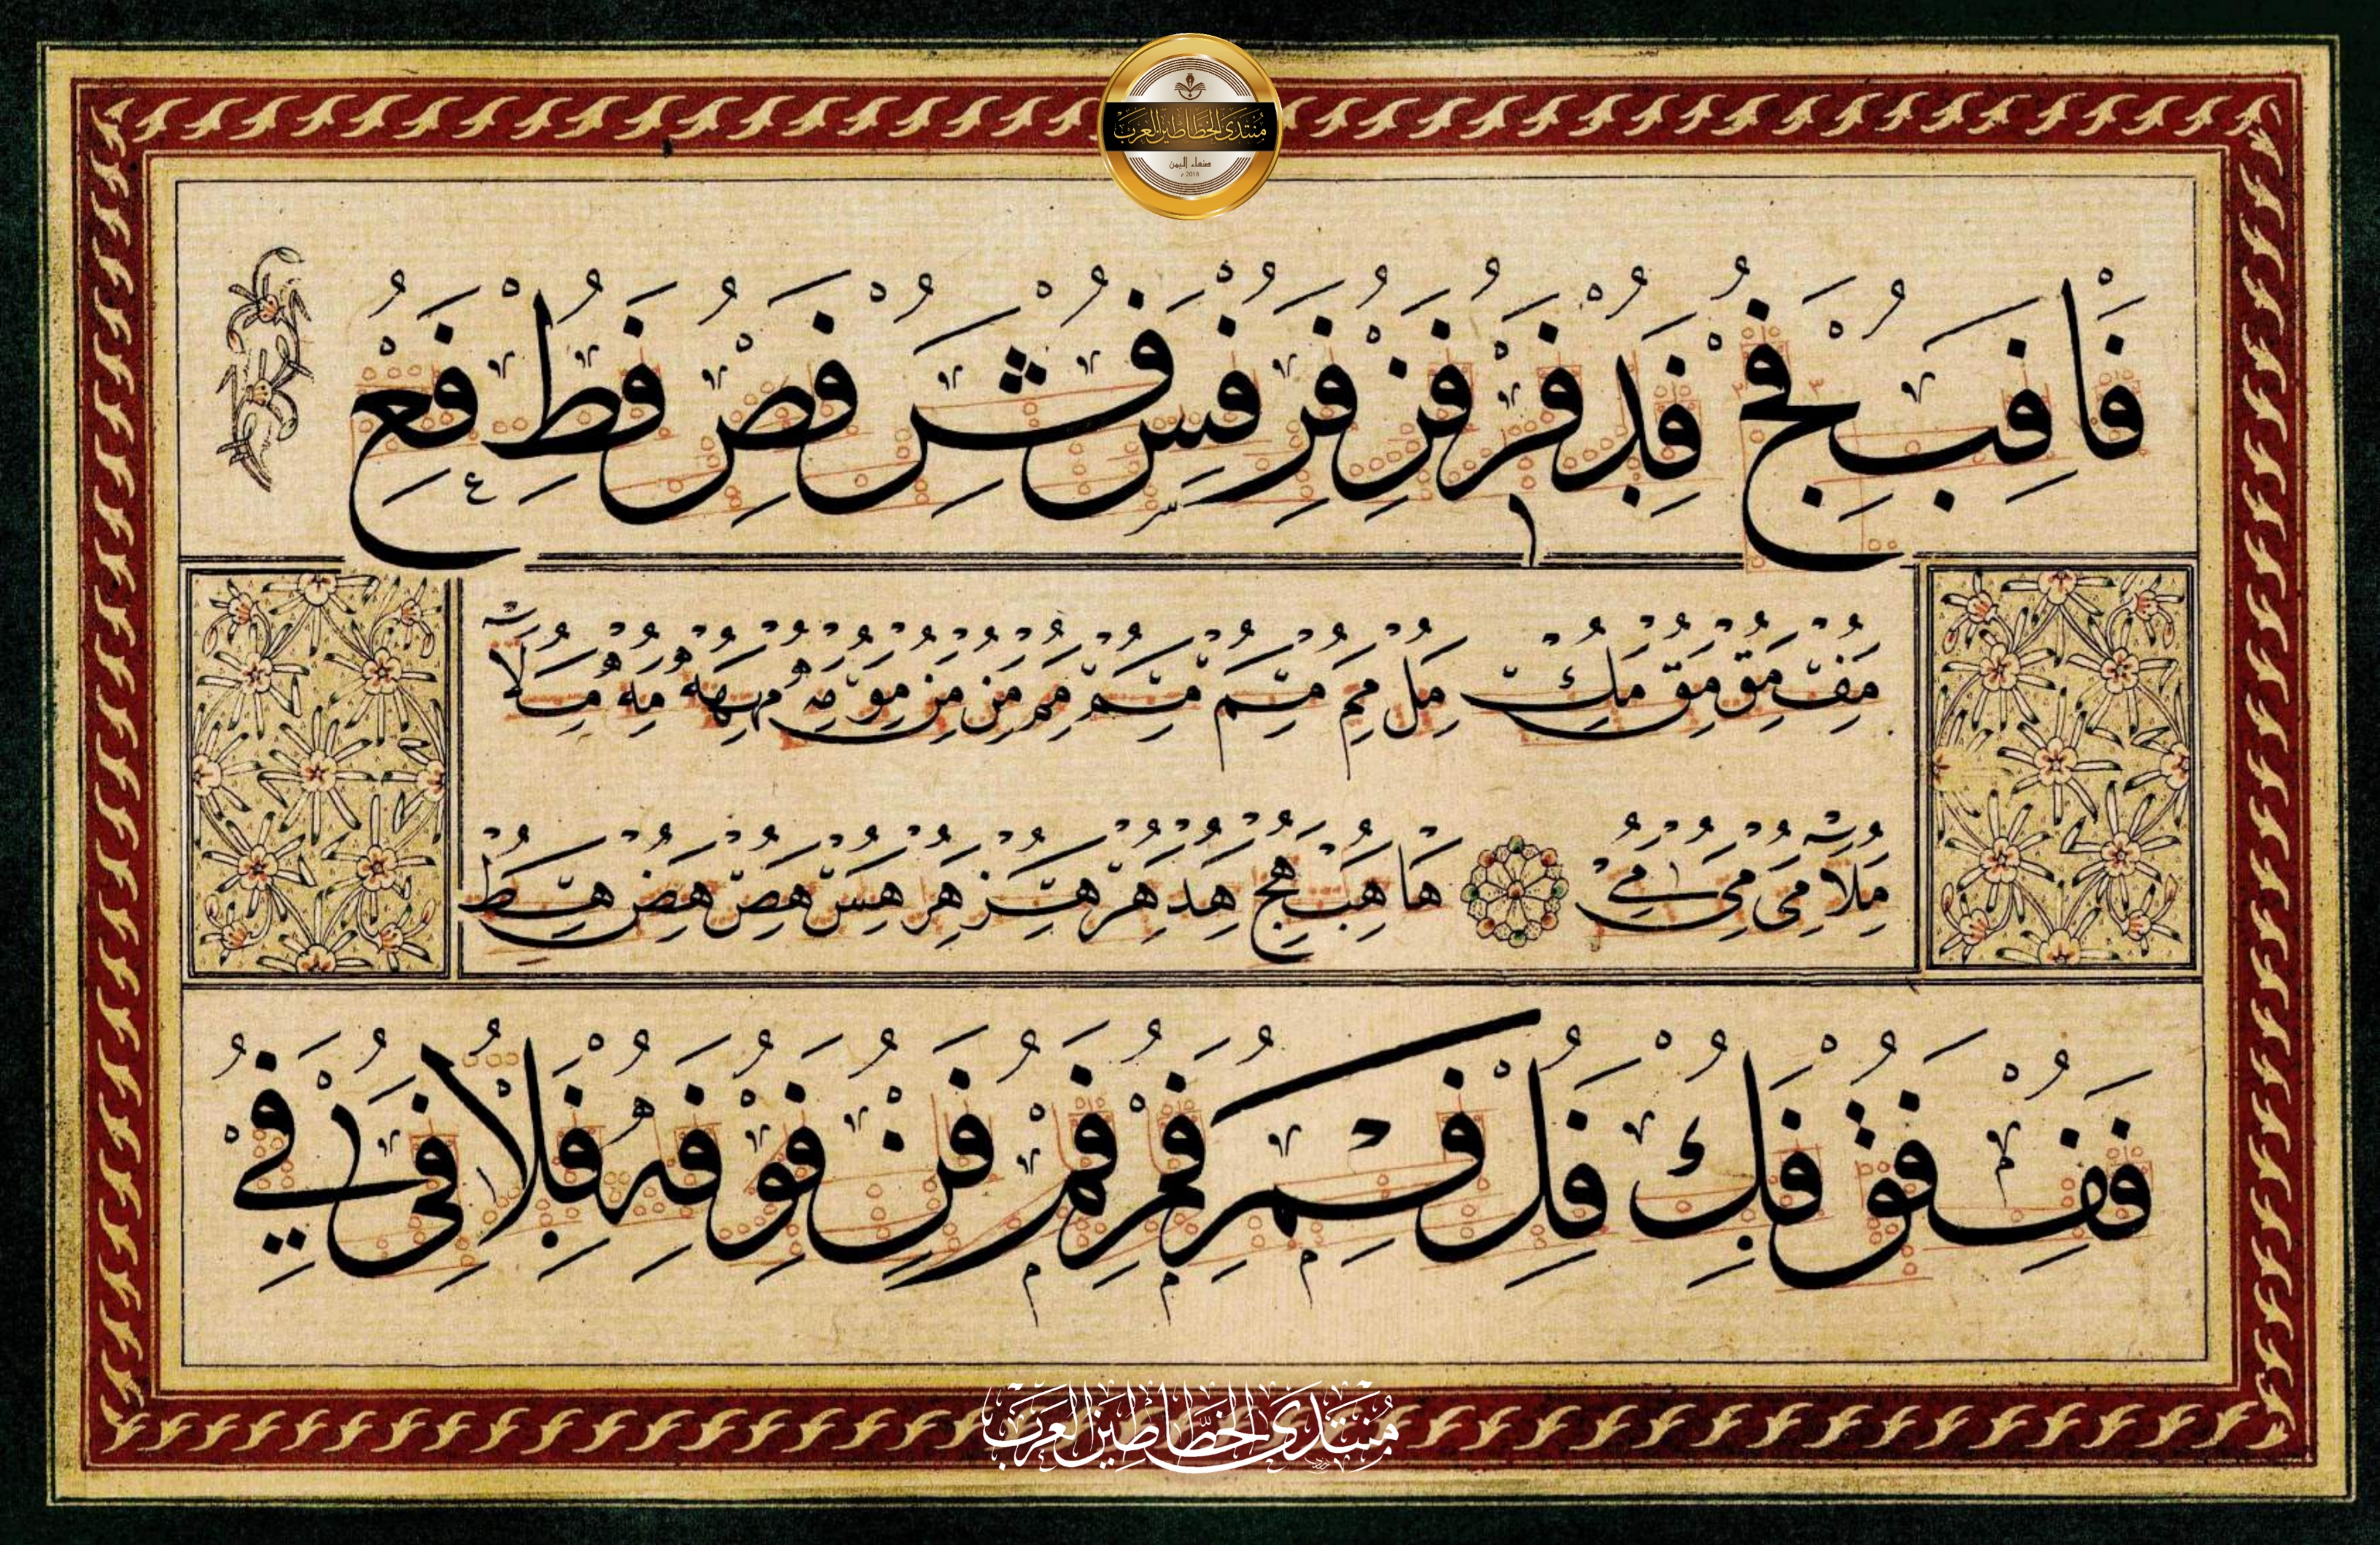 منتدى الخطاطين العرب
صنعاء اليمن
2018 م
فا فب فج فد فر فز فر فس فش فص فط فع
مف مق مق مك مل مم مم مم مم من من مو مه مهه مه ملا
ملا مى مى مي ها هب هج هد هر هز هر هس هص هض هط
فف فق فك فل فم فم فم فن فو فه فلا فى في
منتدى الخطاطين العرب